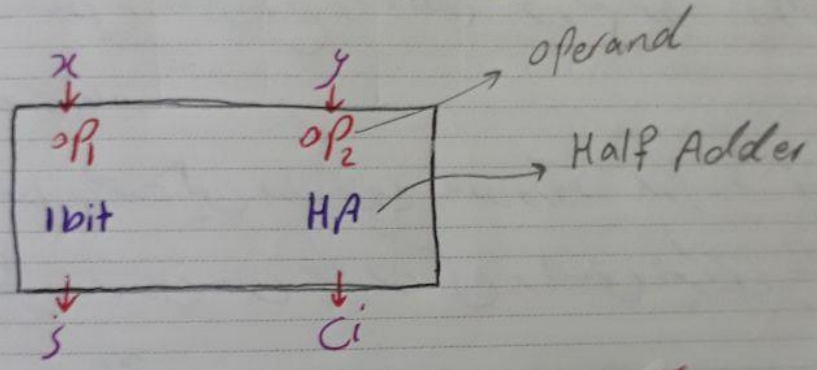 x y operand
OP₁ OP₂
Half Adder
1bit HA
s Ci